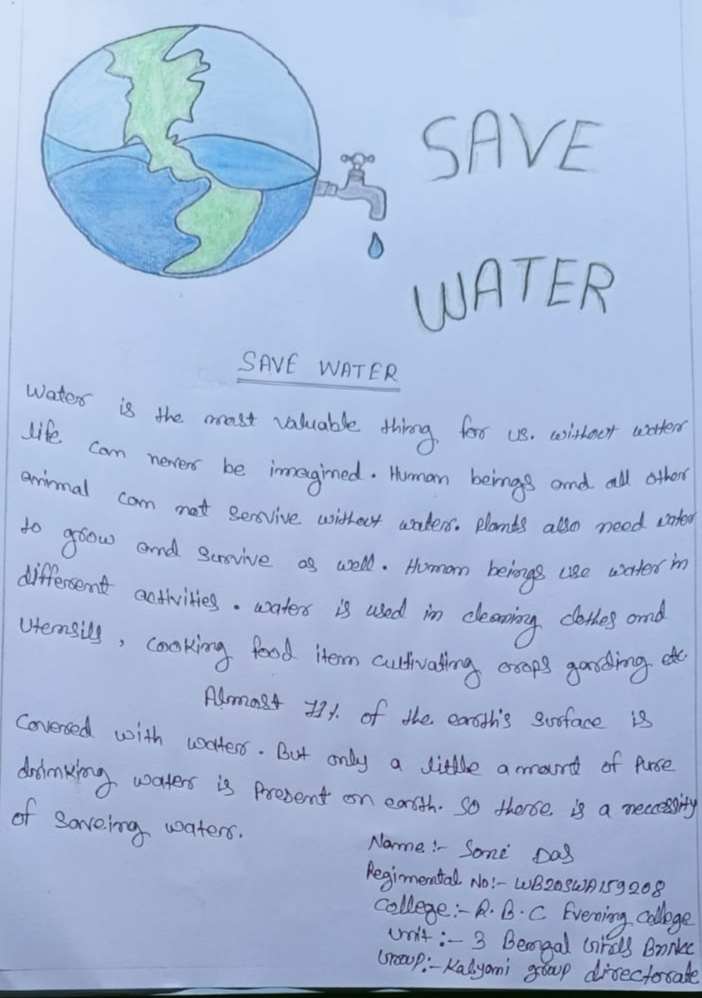 SAVE
WATER
SAVE WATER
Water is the most valuable thing for us. without water
life can never be imagined. Human beings and all other
animal can not servive without water. Plants also need water
to grow and survive as well. Human beings use water in
different activities. water is used in cleaning clothes and
Utensills, cooking food item cultivating crops garding etc
Almost 71% of the earth's surface is
Covered with water. But only a little amount of Pure
drinking water is Present on earth. So there is a neccessity
of Saveing water.
Name:- Soni Das
Regimental No:- WB20SWA159208
College:- R.B.C Evening College
Unit:- 3 Bengal Girls Bn NCC
Group:- Kalyani group directorate